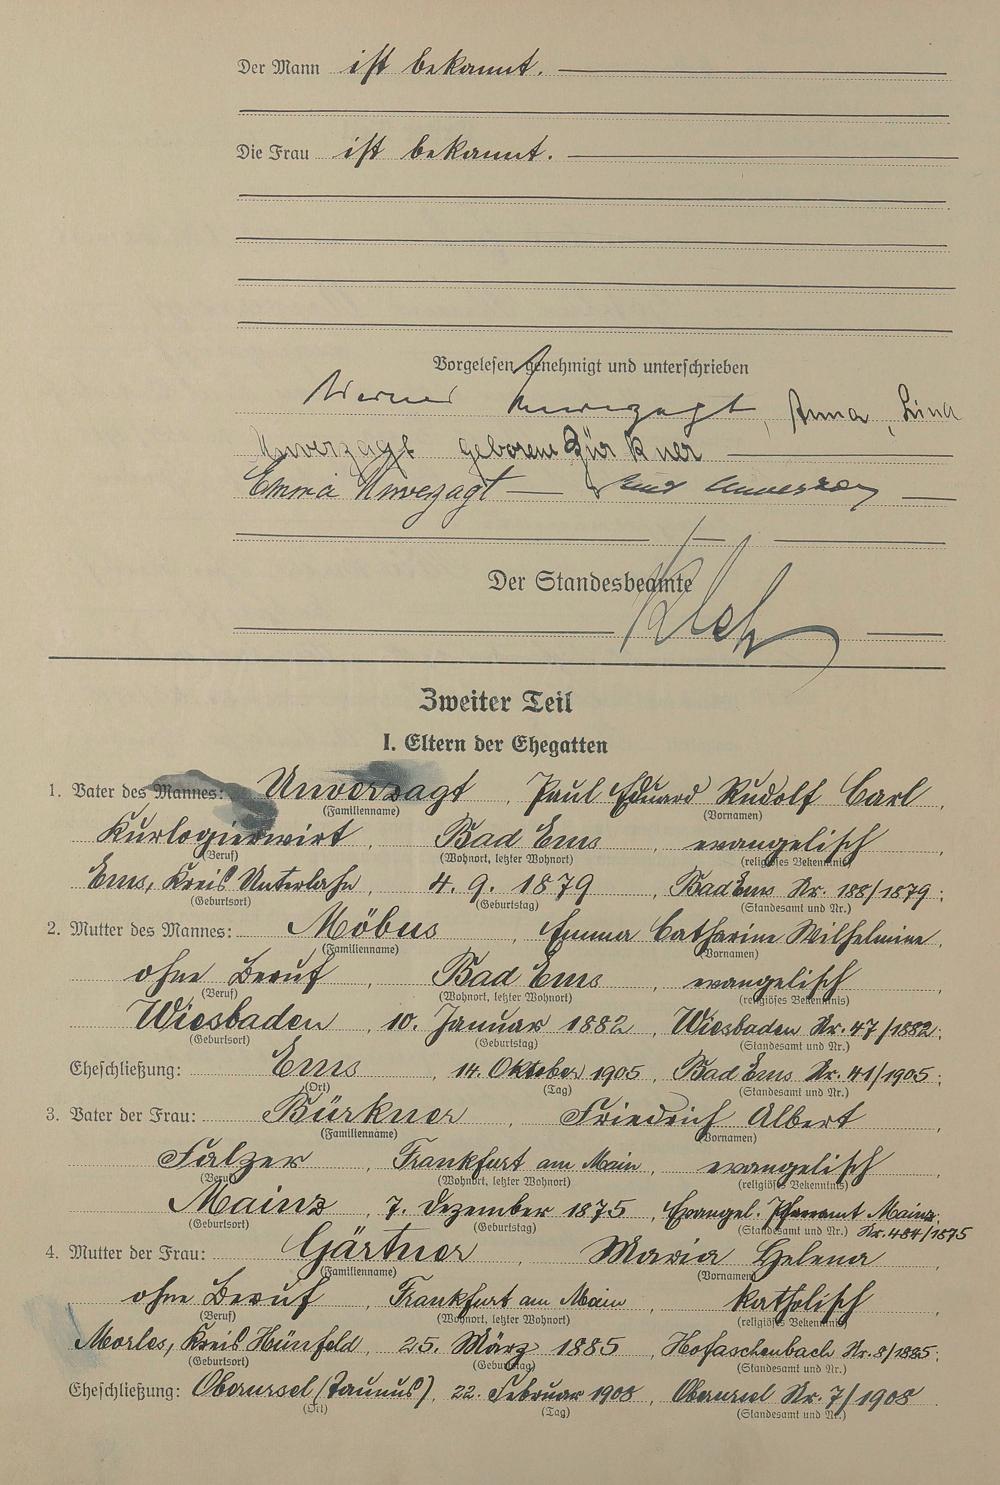 Der Mann ist bekannt.
Die Frau ist bekannt.
Vorgelesen, genehmigt und unterschrieben
Werner Unverzagt, Anna, Lina
Unverzagt geborene Bürkner
Emma Unverzagt — Unverzagt
Der Standesbeamte
Zweiter Teil
I. Eltern der Ehegatten
1. Vater des Mannes: Unverzagt, Paul Eduard Rudolf Carl,
(Familienname) (Vornamen)
Kurlogierwirt, Bad Ems, evangelisch,
(Beruf) (Wohnort, letzter Wohnort) (religiöses Bekenntnis)
Ems, Kreis Unterlahn, 4. 9. 1879, Bad Ems Nr. 188/1879;
(Geburtsort) (Geburtstag) (Standesamt und Nr.)
2. Mutter des Mannes: Möbus, Emma Catharine Wilhelmine,
(Familienname) (Vornamen)
ohne Beruf, Bad Ems, evangelisch,
(Beruf) (Wohnort, letzter Wohnort) (religiöses Bekenntnis)
Wiesbaden, 10. Januar 1882, Wiesbaden Nr. 47/1882;
(Geburtsort) (Geburtstag) (Standesamt und Nr.)
Eheschließung: Ems, 14. Oktober 1905, Bad Ems Nr. 41/1905;
(Ort) (Tag) (Standesamt und Nr.)
3. Vater der Frau: Bürkner, Friedrich Albert,
(Familienname) (Vornamen)
Falzer, Frankfurt am Main, evangelisch,
(Beruf) (Wohnort, letzter Wohnort) (religiöses Bekenntnis)
Mainz, 7. Dezember 1875, Evangel. Pfarramt Mainz;
(Geburtsort) (Geburtstag) (Standesamt und Nr.) Nr. 484/1875
4. Mutter der Frau: Gärtner, Maria Helena,
(Familienname) (Vornamen)
ohne Beruf, Frankfurt am Main, katholisch,
(Beruf) (Wohnort, letzter Wohnort) (religiöses Bekenntnis)
Morles, Kreis Hünfeld, 25. März 1885, Hofaschenbach Nr. 8/1885;
(Geburtsort) (Geburtstag) (Standesamt und Nr.)
Eheschließung: Oberursel (Taunus), 22. Februar 1908, Oberursel Nr. 7/1908.
(Ort) (Tag) (Standesamt und Nr.)